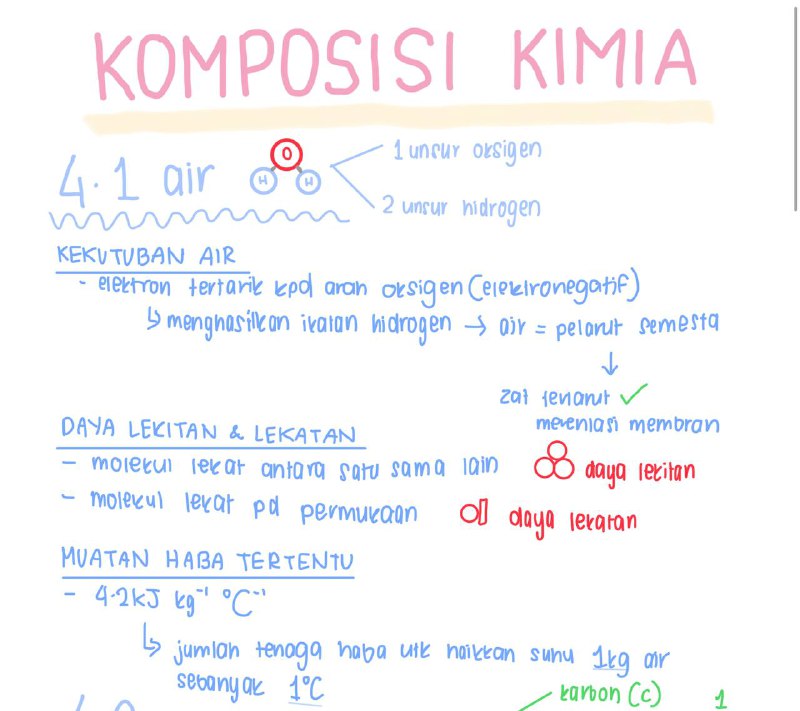 KOMPOSISI KIMIA
4.1 air
O
H H
1 unsur oksigen
2 unsur hidrogen
KEKUTUBAN AIR
- elektron tertarik kpd arah oksigen (elektronegatif)
↳ menghasilkan ikatan hidrogen → air = pelarut semesta
↓
zat terlarut ✓
merentasi membran
DAYA LEKITAN & LEKATAN
- molekul lekat antara satu sama lain
daya lekitan
- molekul lekat pd permukaan
daya lekatan
MUATAN HABA TERTENTU
- 4.2kJ kg⁻¹ °C⁻¹
↳ jumlah tenaga haba utk naikkan suhu 1kg air
sebanyak 1°C
karbon (c) 1